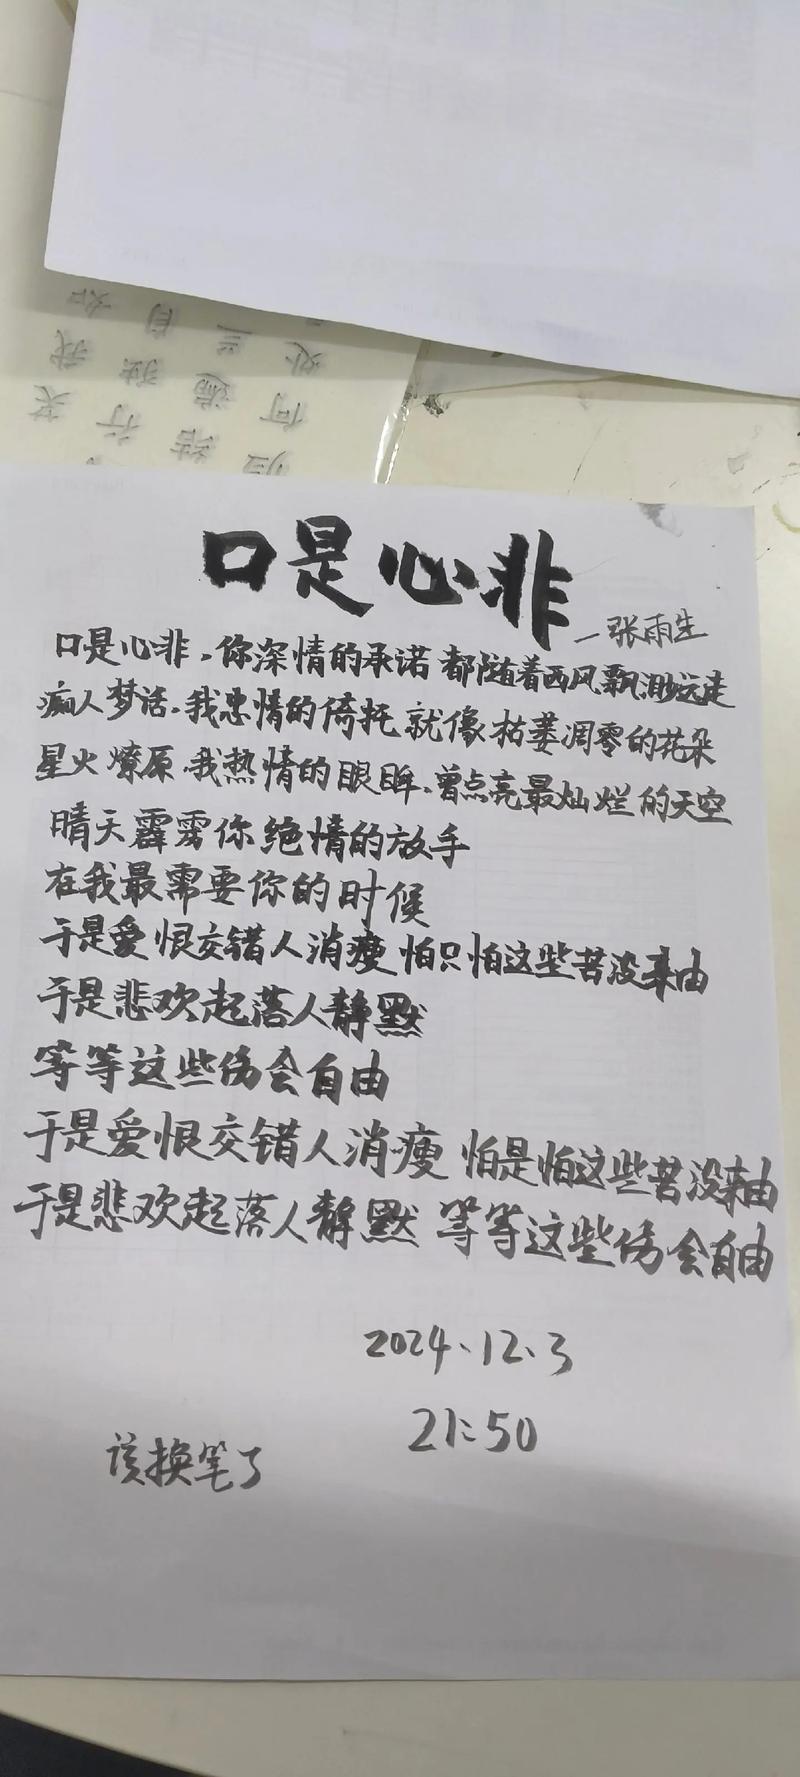 口是心非
—张雨生
口是心非,你深情的承诺 都随着西风飘渺远走
痴人梦话,我悲情的倚托 就像枯萎凋零的花朵
星火燎原,我热情的眼眸,曾点亮最灿烂的天空
晴天霹雳你绝情的放手
在我最需要你的时候
于是爱恨交错人消瘦 怕只怕这些苦没来由
于是悲欢起落人静默
等等这些伤会自由
于是爱恨交错人消瘦 怕是怕这些苦没来由
于是悲欢起落人静默 等等这些伤会自由
2024.12.3
21:50
该换笔了